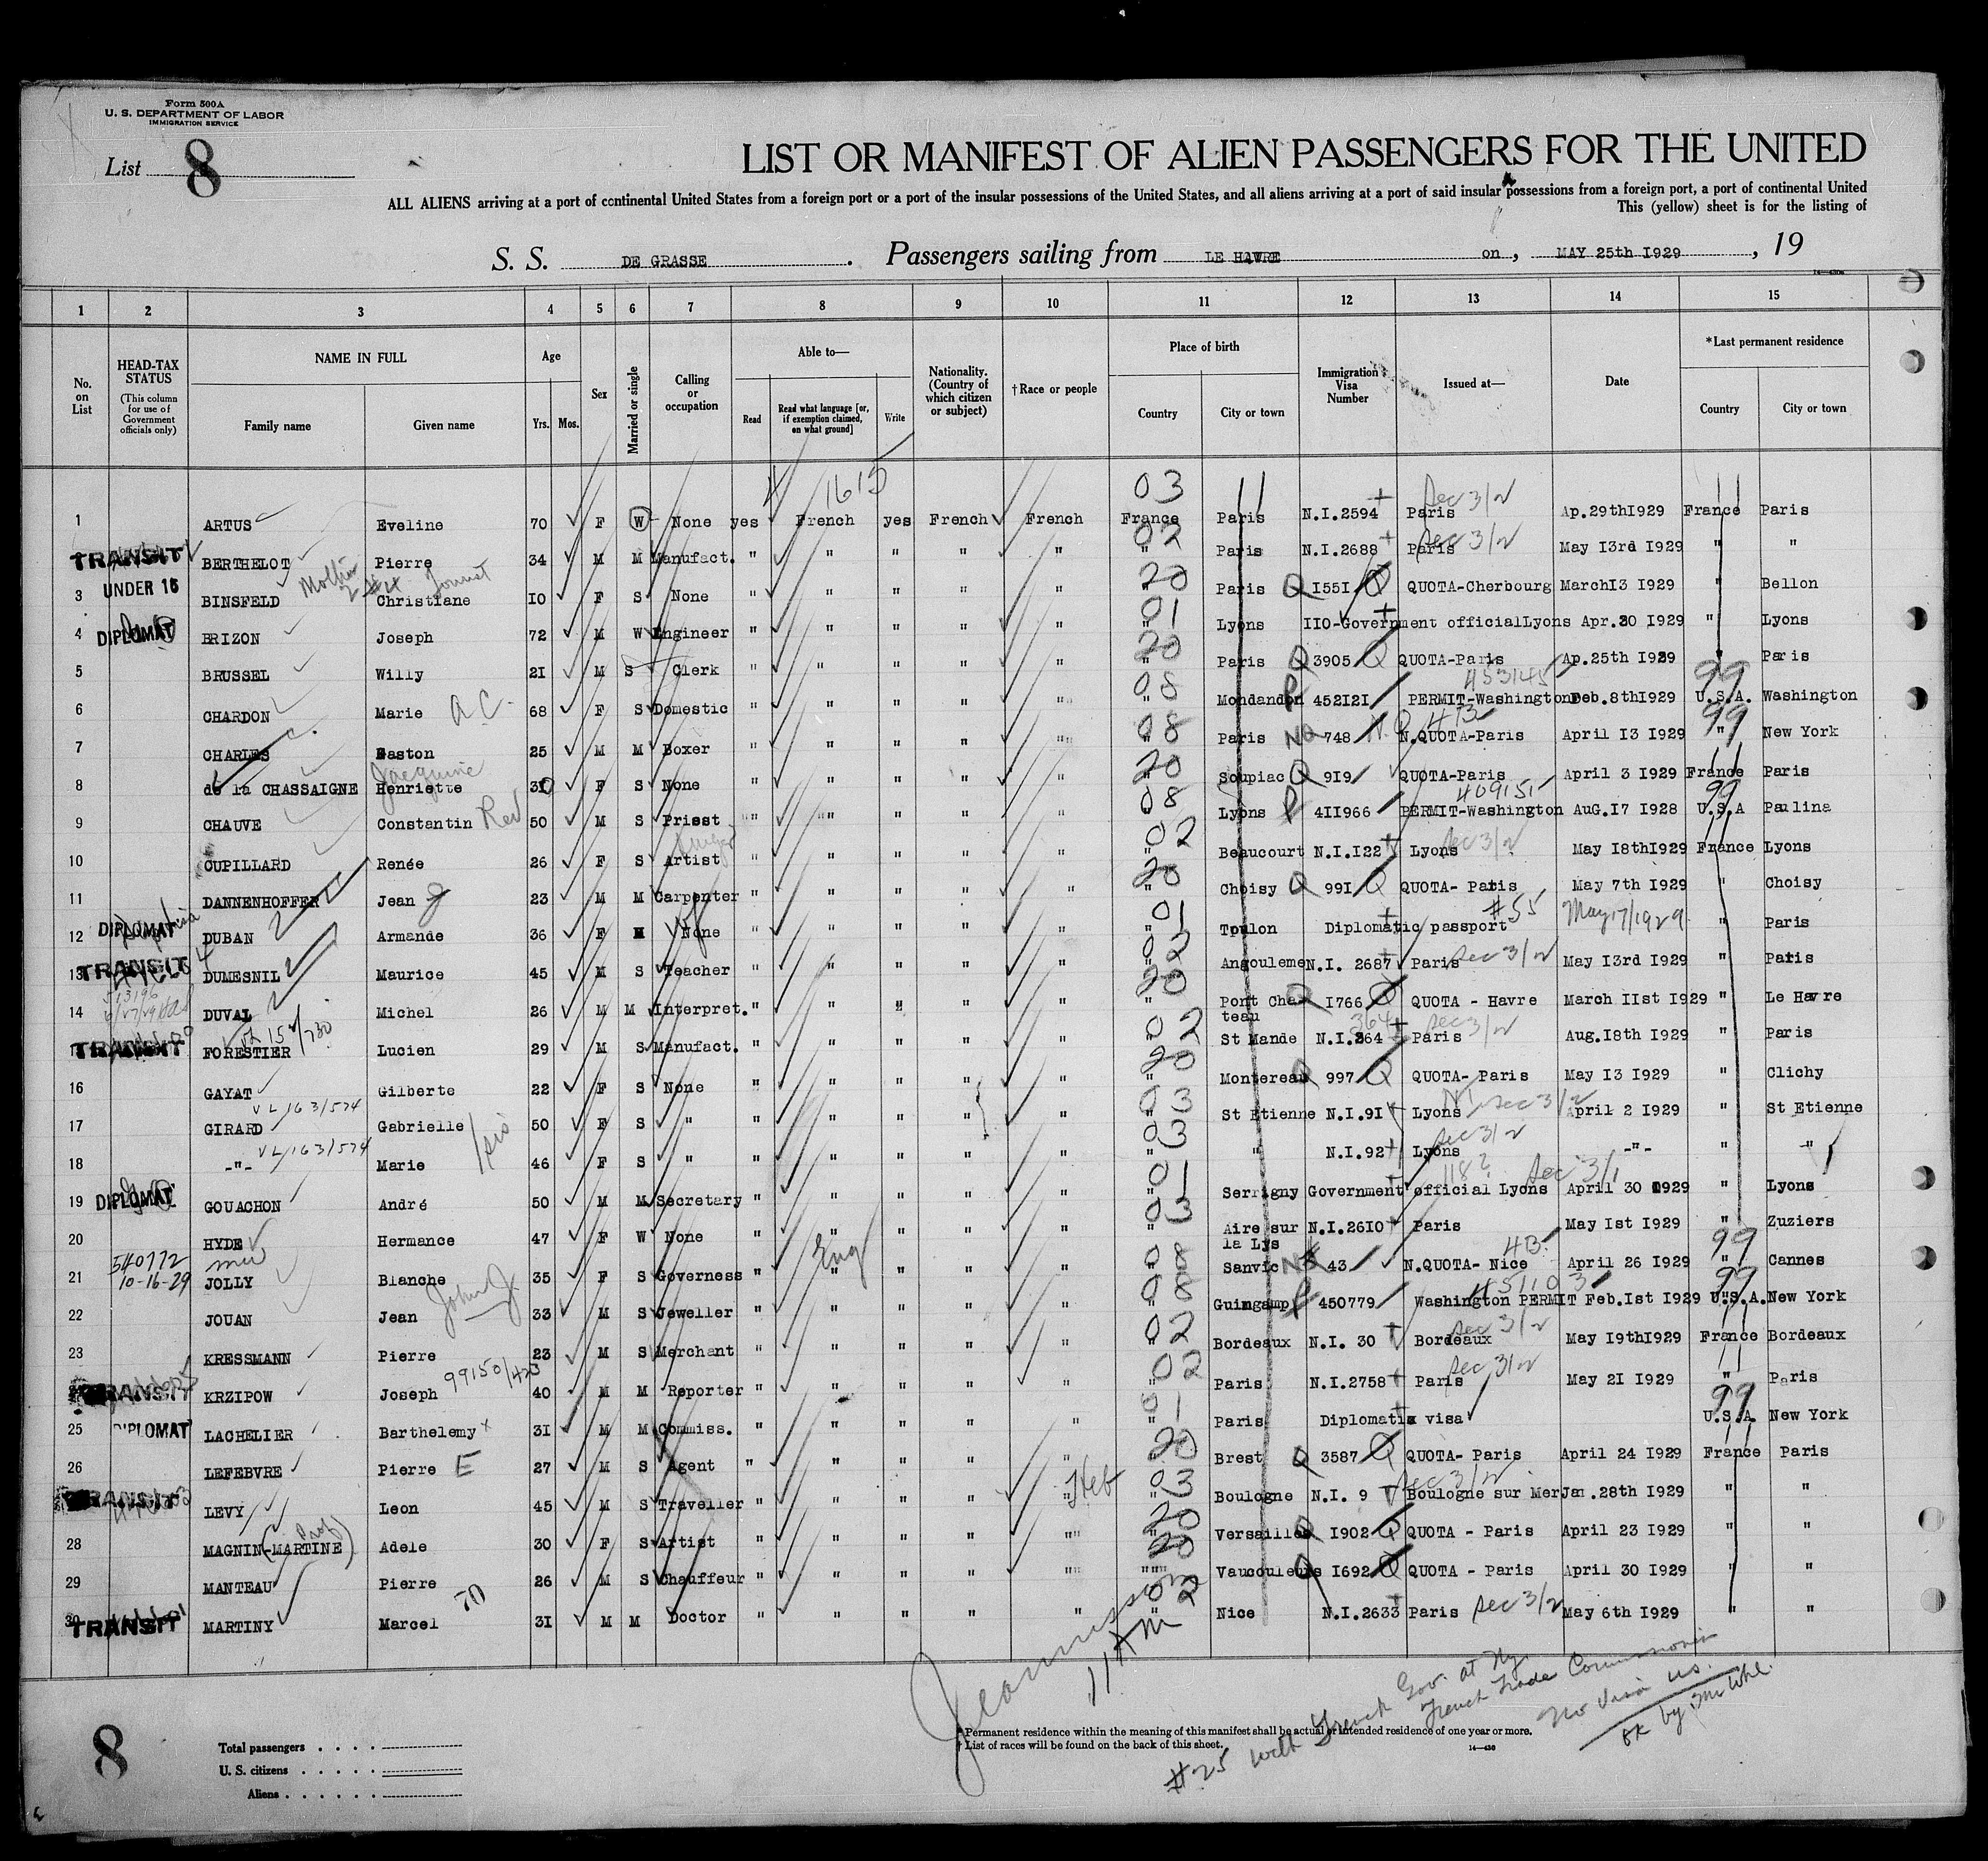 Form 500A
U. S. DEPARTMENT OF LABOR
IMMIGRATION SERVICE
List 8
LIST OR MANIFEST OF ALIEN PASSENGERS FOR THE UNITED
ALL ALIENS arriving at a port of continental United States from a foreign port or a port of the insular possessions of the United States, and all aliens arriving at a port of said insular possessions from a foreign port, a port of continental United
This (yellow) sheet is for the listing of
S. S. DE GRASSE . Passengers sailing from LE HAVRE on , MAY 25th 1929 , 19
1 2 3 4 5 6 7 8 9 10 11 12 13 14 15
No. on List
HEAD-TAX STATUS (This column for use of Government officials only)
NAME IN FULL Family name Given name
Age Yrs. Mos.
Sex
Married or single
Calling or occupation
Able to— Read Read what language [or, if exemption claimed, on what ground] Write
Nationality. (Country of which citizen or subject)
†Race or people
Place of birth Country City or town
Immigration Visa Number
Issued at—
Date
*Last permanent residence Country City or town
1615
1 ARTUS Eveline 70 F W None yes French yes French French 03 France Paris N.I.2594 Paris Sec 3/2 Ap.29th1929 France Paris
TRANSIT BERTHELOT Pierre 34 M M Manufact. " " " " " 02 " Paris N.I.2688 Paris Sec 3/2 May I3rd I929 " "
3 UNDER 16 BINSFELD Christiane IO F S None " " " " " 20 " Paris Q I55I Q QUOTA-Cherbourg MarchI3 I929 " Bellon
4 DIPLOMAT BRIZON Joseph 72 M W Engineer " " " " " 01 " Lyons IIO-Government official Lyons Apr.30 I929 " Lyons
5 BRUSSEL Willy 2I M S Clerk " " " " " 20 " Paris Q 3905 Q QUOTA-Paris Ap.25th I929 " Paris
6 CHARDON Marie A.C. 68 F S Domestic " " " " " 08 " Mondandon P 452I2I PERMIT-Washington 453145 Feb.8thI929 99 U.S.A. Washington
7 CHARLES Gaston 25 M M Boxer " " " " " 08 " Paris NQ 748 N.QUOTA-Paris N.Q 4B April I3 I929 99 " New York
8 de la CHASSAIGNE Henriette 30 F S None " " " " " 20 " Soupiac Q 9I9 QUOTA-Paris April 3 I929 France Paris
9 CHAUVE Constantin Rev 50 M S Priest " " " " " 08 " Lyons P 4II966 PERMIT-Washington 409151 AuG.I7 I928 99 U.S.A Paulina
10 CUPILLARD Renée 26 F S Artist " " " " " 02 " Beaucourt N.I.I22 Lyons Sec 3/2 May I8thI929 France Lyons
11 DANNENHOFFER Jean J 23 M M Carpenter " " " " " 20 " Choisy Q 99I Q QUOTA- Paris May 7th I929 " Choisy
12 DIPLOMAT DUBAN Armande 36 F M None " " " " " 01 " Toulon Diplomatic passport #55 May 17/1929 " Paris
13 TRANSIT DUMESNIL Maurice 45 M S Teacher " " " " " 02 " Angouleme N.I. 2687 Paris Sec 3/2 May I3rd I929 " Paris
14 DUVAL Michel 26 M M Interpret. " " " " " 20 " Pont Chateau Q I766 Q QUOTA - Havre March IIst I929 " Le Havre
TRANSIT FORESTIER Lucien 29 M S Manufact. " " " " " 02 " St Mande N.I.264 364 Paris Sec 3/2 Aug.I8th I929 " Paris
16 GAYAT Gilberte 22 F S None " " " " " 20 " Montereau Q 997 Q QUOTA- Paris May I3 I929 " Clichy
17 GIRARD VL/163/574 Gabrielle 50 F S " " " " " " 03 " St Etienne N.I.9I Lyons Sec 3/2 April 2 I929 " St Etienne
18 -"- VL/163/574 Marie 46 F S " " " " " " 03 " " N.I.92 Lyons Sec 3/2 -"- " -"-
19 DIPLOMAT GOUACHON André 50 M M Secretary " " " " " 01 " Serrigny Government official Lyons Sec 3/1 April 30 I929 " Lyons
20 HYDE Hermance 47 F W None " " " " " 03 " Aire sur la Lys N.I.26I0 Paris May Ist I929 " Zuziers
21 540772 10-16-29 JOLLY Blanche 35 F S Governess " " Eng " " " 08 " Sanvic NQ 43 N.QUOTA- Nice 4B April 26 I929 99 " Cannes
22 JOUAN Jean John J. 33 M S Jeweller " " " " " 08 " Guingamp P 450779 Washington PERMIT 451103 Feb.Ist I929 99 U.S.A. New York
23 KRESSMANN Pierre 23 M S Merchant " " " " " 02 " Bordeaux N.I. 30 Bordeaux Sec 3/2 May I9thI929 France Bordeaux
TRANSIT KRZIPOW Joseph 99150/420 40 M M Reporter " " " " " 02 " Paris N.I.2758 Paris Sec 3/2 May 2I I929 " Paris
25 DIPLOMAT LACHELIER Barthelemy x 3I M M Commiss. " " " " " 01 " Paris Diplomatic visa 99 U.S.A. New York
26 LEFEBVRE Pierre E 27 M S Agent " " " " " 20 " Brest Q 3587 Q QUOTA- Paris April 24 I929 France Paris
TRANSIT LEVY Leon 45 M S Traveller " " " " " Heb 03 " Boulogne N.I. 9 Boulogne sur Mer Sec 3/2 Jan.28th I929 " "
28 MAGNIN (-MARTINE) Prof Adele 30 F S Artist " " " " " 20 " Versailles Q I902 Q QUOTA - Paris April 23 I929 " "
29 MANTEAU Pierre 26 M S Chauffeur " " " " " 20 " Vaucouleurs Q I692 Q QUOTA - Paris April 30 I929 " "
30 TRANSIT MARTINY Marcel 3I M M Doctor " " " " " 02 " Nice N.I.2633 Paris Sec 3/2 May 6th I929 " "
11 AM
8
Total passengers
U. S. citizens
Aliens
* Permanent residence within the meaning of this manifest shall be actual or intended residence of one year or more.
† List of races will be found on the back of this sheet.
14—430
#25 with French Gov. at Ny.
French Trade Commission
No visa us.
ok by